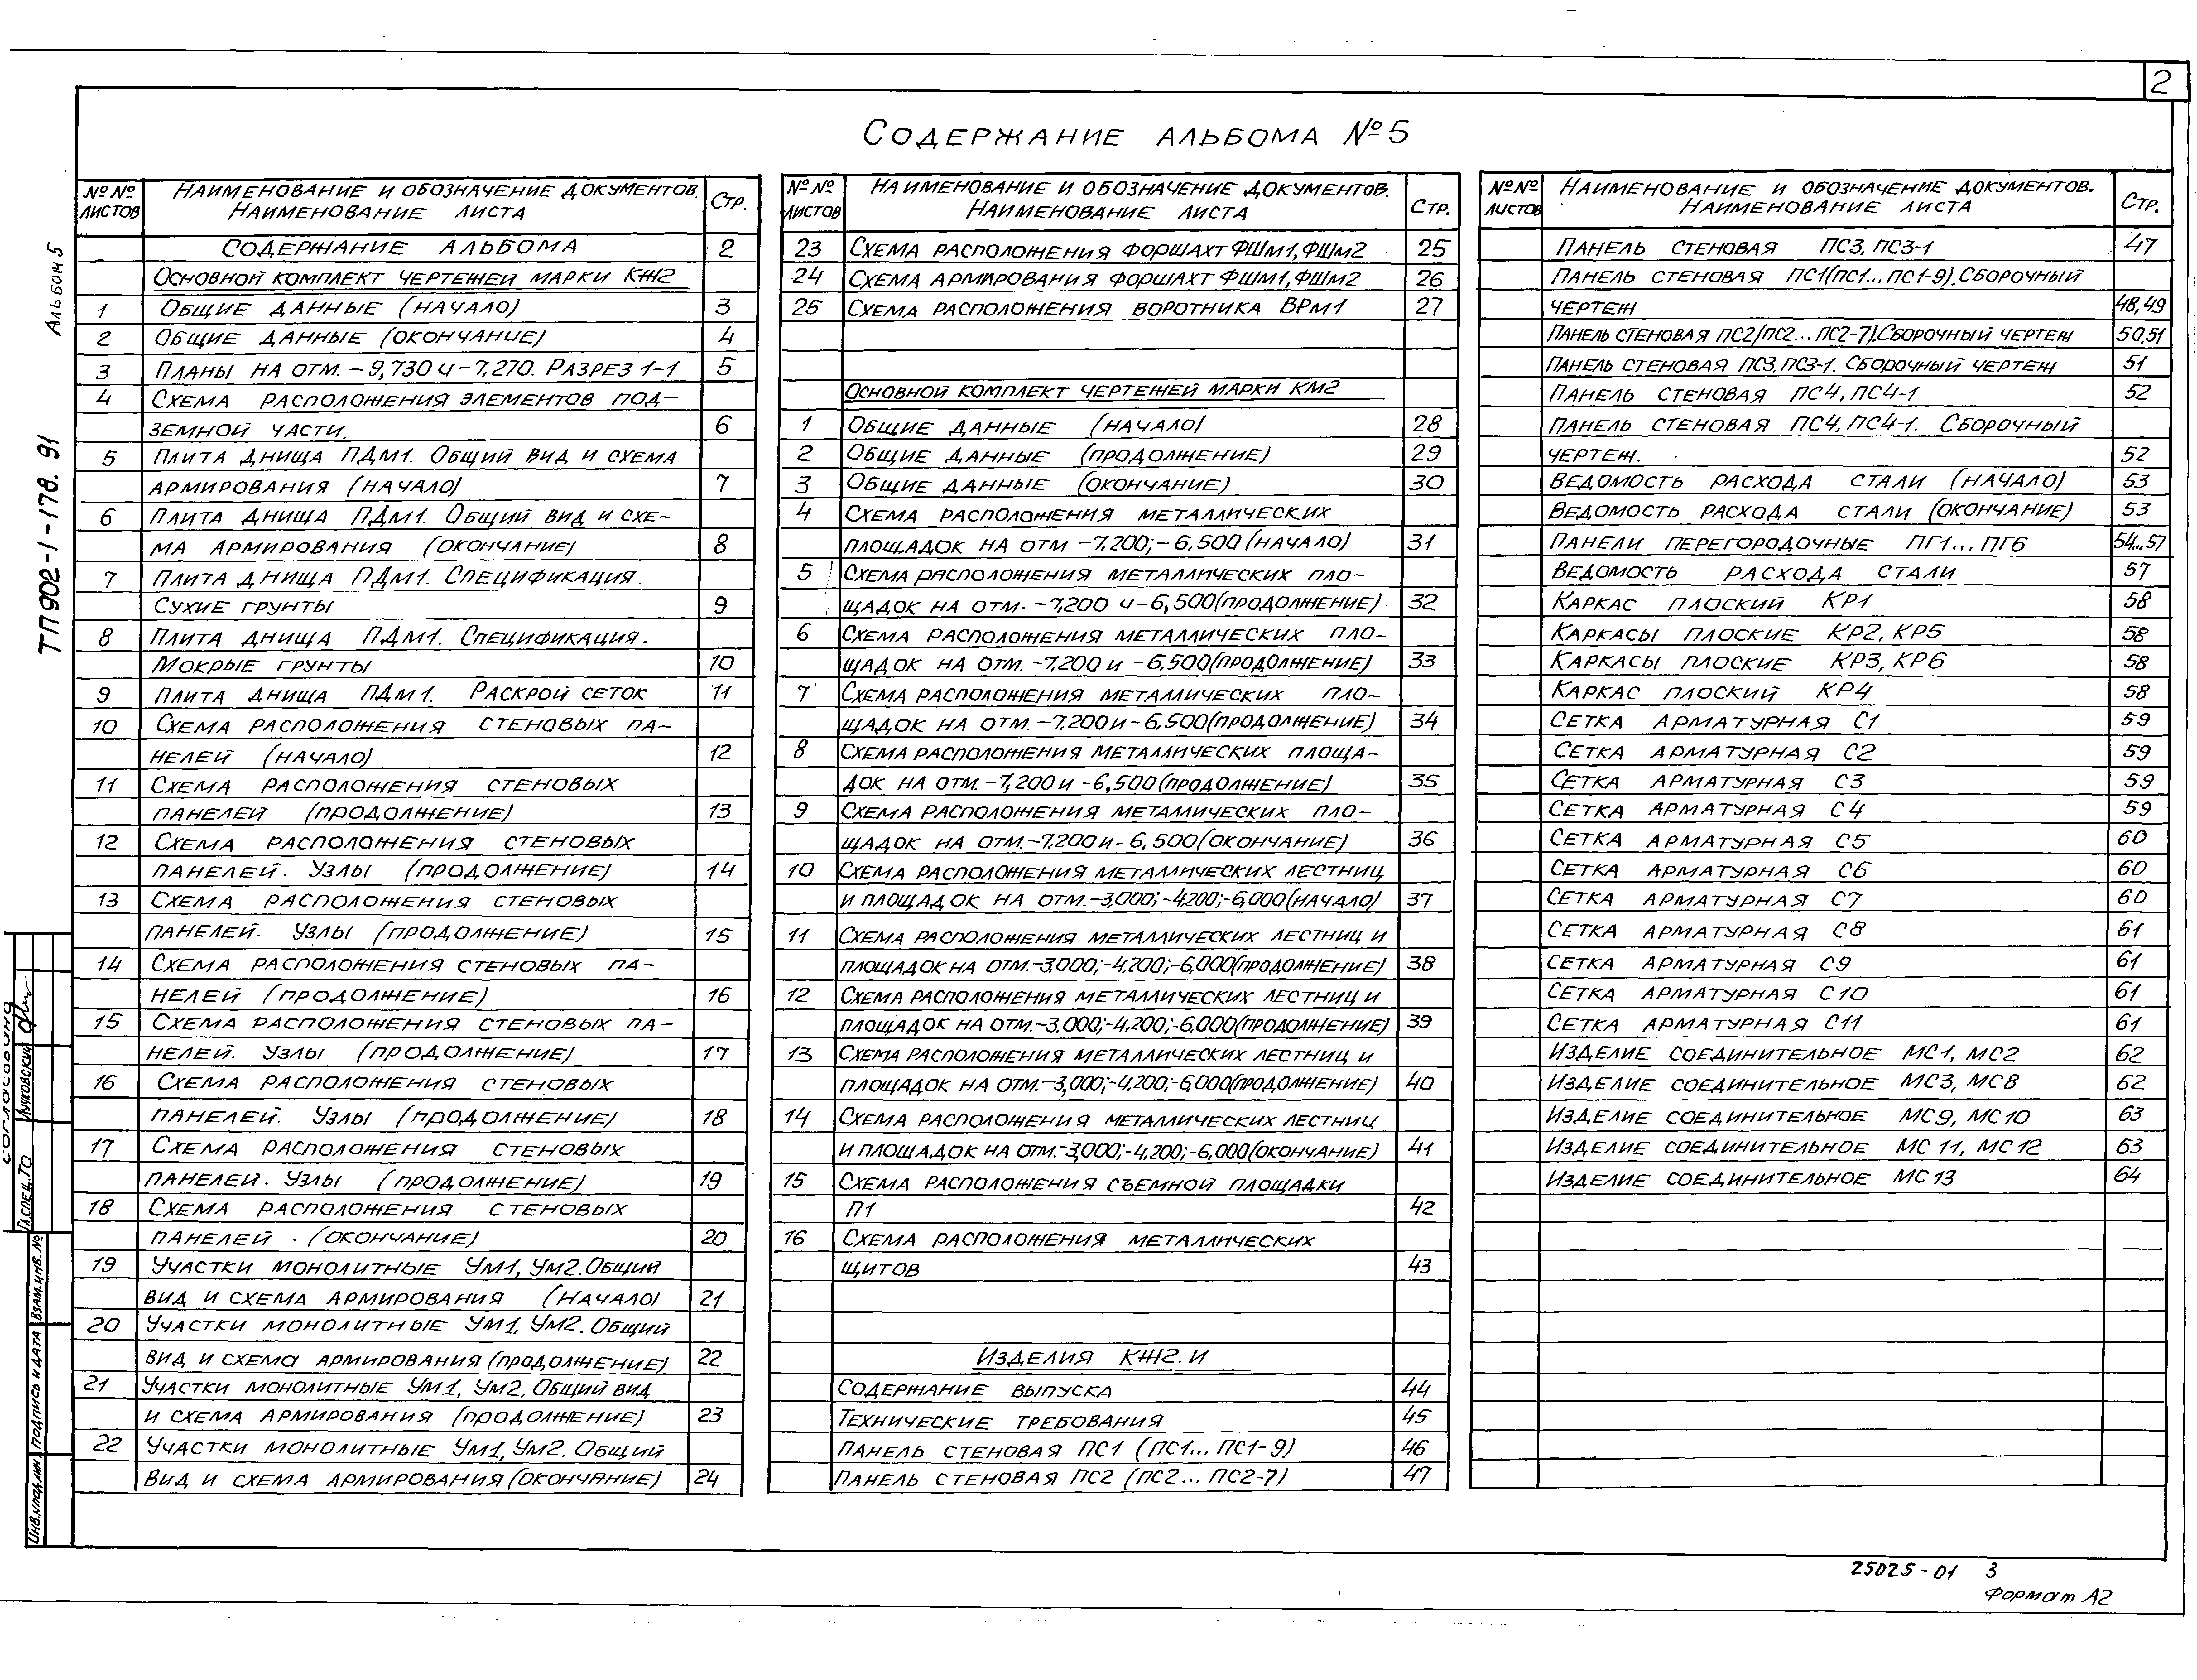 2
Содержание альбома №5
№№ листов | Наименование и обозначение документов. Наименование листа | Стр.
Содержание альбома 2
Основной комплект чертежей марки КЖ2
1 Общие данные (начало) 3
2 Общие данные (окончание) 4
3 Планы на отм. -9,730 и -7,270. Разрез 1-1 5
4 Схема расположения элементов под-
земной части. 6
5 Плита днища ПДм1. Общий вид и схема
армирования (начало) 7
6 Плита днища ПДм1. Общий вид и схе-
ма армирования (окончание) 8
7 Плита днища ПДм1. Спецификация.
Сухие грунты 9
8 Плита днища ПДм1. Спецификация.
Мокрые грунты 10
9 Плита днища ПДм1. Раскрой сеток 11
10 Схема расположения стеновых па-
нелей (начало) 12
11 Схема расположения стеновых
панелей (продолжение) 13
12 Схема расположения стеновых
панелей. Узлы (продолжение) 14
13 Схема расположения стеновых
панелей. Узлы (продолжение) 15
14 Схема расположения стеновых па-
нелей (продолжение) 16
15 Схема расположения стеновых па-
нелей. Узлы (продолжение) 17
16 Схема расположения стеновых
панелей. Узлы (продолжение) 18
17 Схема расположения стеновых
панелей. Узлы (продолжение) 19
18 Схема расположения стеновых
панелей. (окончание) 20
19 Участки монолитные Ум1, Ум2. Общий
вид и схема армирования (начало) 21
20 Участки монолитные Ум1, Ум2. Общий
вид и схема армирования (продолжение) 22
21 Участки монолитные Ум1, Ум2. Общий вид
и схема армирования (продолжение) 23
22 Участки монолитные Ум1, Ум2. Общий
вид и схема армирования (окончание) 24
№№ листов | Наименование и обозначение документов. Наименование листа | Стр.
23 Схема расположения форшахт ФШм1, ФШм2 25
24 Схема армирования форшахт ФШм1, ФШм2 26
25 Схема расположения воротника ВРм1 27
Основной комплект чертежей марки КМ2
1 Общие данные (начало) 28
2 Общие данные (продолжение) 29
3 Общие данные (окончание) 30
4 Схема расположения металлических
площадок на отм -7,200; -6,500 (начало) 31
5 Схема расположения металлических пло-
щадок на отм. -7,200 и -6,500 (продолжение). 32
6 Схема расположения металлических пло-
щадок на отм. -7,200 и -6,500 (продолжение) 33
7 Схема расположения металлических пло-
щадок на отм. -7,200 и -6,500 (продолжение) 34
8 Схема расположения металлических площа-
док на отм. -7,200 и -6,500 (продолжение) 35
9 Схема расположения металлических пло-
щадок на отм. -7,200 и -6,500 (окончание) 36
10 Схема расположения металлических лестниц
и площадок на отм. -3,000; -4,200; -6,000 (начало) 37
11 Схема расположения металлических лестниц и
площадок на отм. -3,000; -4,200; -6,000 (продолжение) 38
12 Схема расположения металлических лестниц и
площадок на отм. -3,000; -4,200; -6,000 (продолжение) 39
13 Схема расположения металлических лестниц и
площадок на отм. -3,000; -4,200; -6,000 (продолжение) 40
14 Схема расположения металлических лестниц
и площадок на отм. -3,000; -4,200; -6,000 (окончание) 41
15 Схема расположения съемной площадки
П1 42
16 Схема расположения металлических
щитов 43
Изделия КЖ2.И
Содержание выпуска 44
Технические требования 45
Панель стеновая ПС1 (ПС1... ПС1-9) 46
Панель стеновая ПС2 (ПС2... ПС2-7) 47
№№ листов | Наименование и обозначение документов. Наименование листа | Стр.
Панель стеновая ПС3, ПС3-1 47
Панель стеновая ПС1 (ПС1... ПС1-9). Сборочный
чертеж 48,49
Панель стеновая ПС2 (ПС2... ПС2-7). Сборочный чертеж 50,51
Панель стеновая ПС3, ПС3-1. Сборочный чертеж 51
Панель стеновая ПС4, ПС4-1 52
Панель стеновая ПС4, ПС4-1. Сборочный
чертеж. 52
Ведомость расхода стали (начало) 53
Ведомость расхода стали (окончание) 53
Панели перегородочные ПГ1... ПГ6 54...57
Ведомость расхода стали 57
Каркас плоский КР1 58
Каркасы плоские КР2, КР5 58
Каркасы плоские КР3, КР6 58
Каркас плоский КР4 58
Сетка арматурная С1 59
Сетка арматурная С2 59
Сетка арматурная С3 59
Сетка арматурная С4 59
Сетка арматурная С5 60
Сетка арматурная С6 60
Сетка арматурная С7 60
Сетка арматурная С8 61
Сетка арматурная С9 61
Сетка арматурная С10 61
Сетка арматурная С11 61
Изделие соединительное МС1, МС2 62
Изделие соединительное МС3, МС8 62
Изделие соединительное МС9, МС10 63
Изделие соединительное МС11, МС12 63
Изделие соединительное МС13 64
Альбом 5
ТП 902-1-178.91
Согласовано
Гл.спец.ТО Лучковский
Взам.инв.№
Подпись и дата
Инв.№подл
25025-01 3
Формат А2